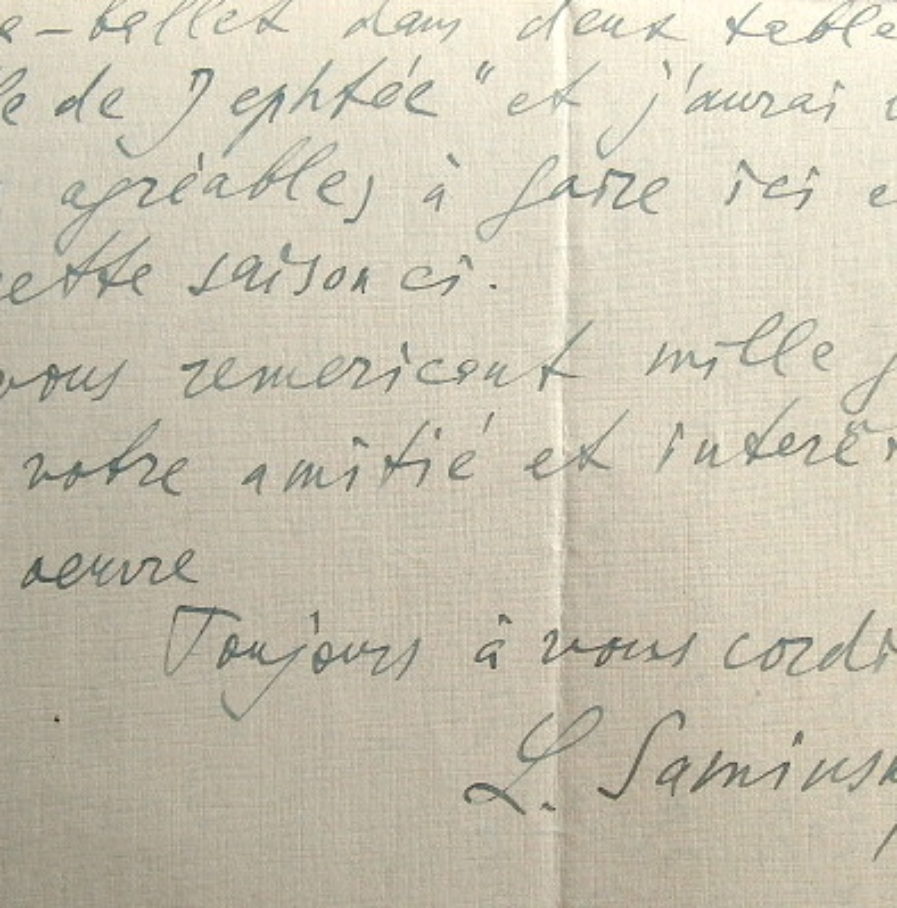 -ballet dans deux table
de Jephtée" et j'aurai
agréables à faire ici e
cette saison ci.
vous remericant mille g
votre amitié et interêt
oeuvre
Toujours à vous cordi
L. Saminsk